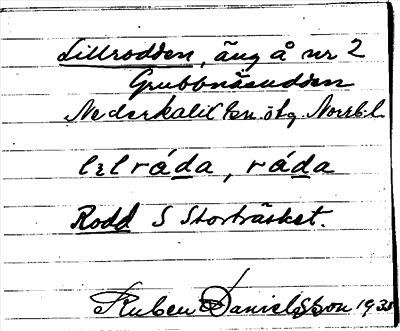 Lillrodden, äng å nr 2
Grubbnäsudden
Nederkalix sn. ökg. Norrb.l.
lɩlráda, ráda
Rodd S Storträsket.
Ruben Danielsson 1935